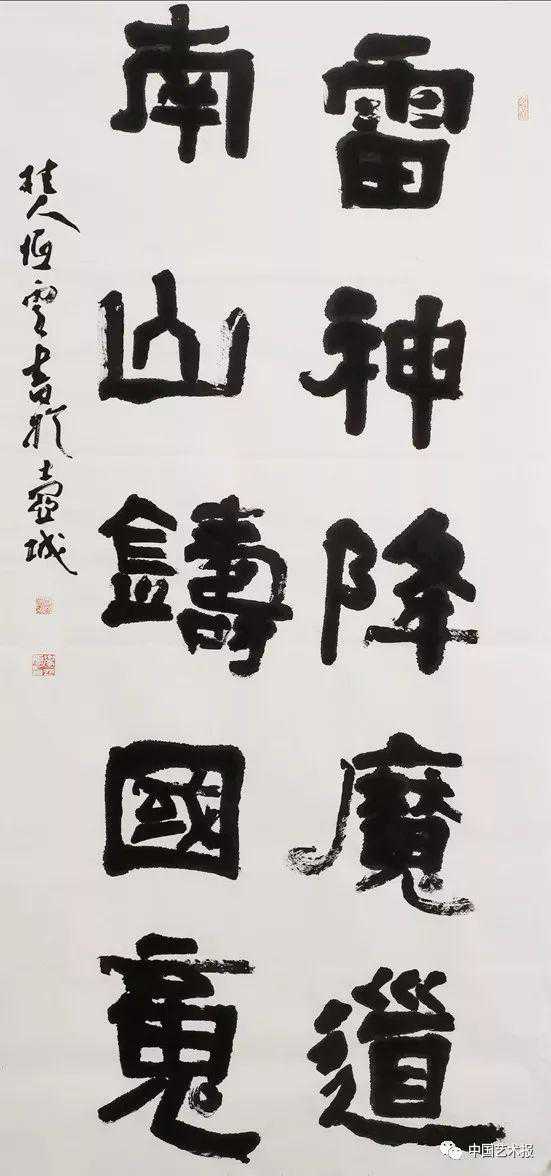 雷神降魔道
南山鑄國魂
桂人恒雲書於壺城
中国艺术报